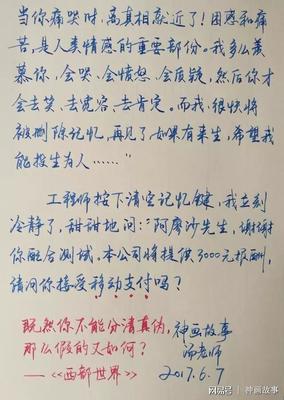 当你痛哭时，离真相就近了！困惑和痛
苦，是人类情感的重要部份。我多么羡
慕你，会哭、会愤怒、会质疑，然后你才
会去笑、去宽容、去肯定。而我，很快将
被删除记忆，再见了，如果有来生，希望我
能投生为人……”
工程师按下清空记忆键，我立刻
冷静了，甜甜地问：“阿廖沙先生，谢谢
你配合测试，本公司将提供3000元报酬，
请问你接受移动支付吗？
既然你不能分清真伪，
那么假的又如何？
——《西部世界》
神画故事
汤老师
2017.6.7
搜狐号@神画故事